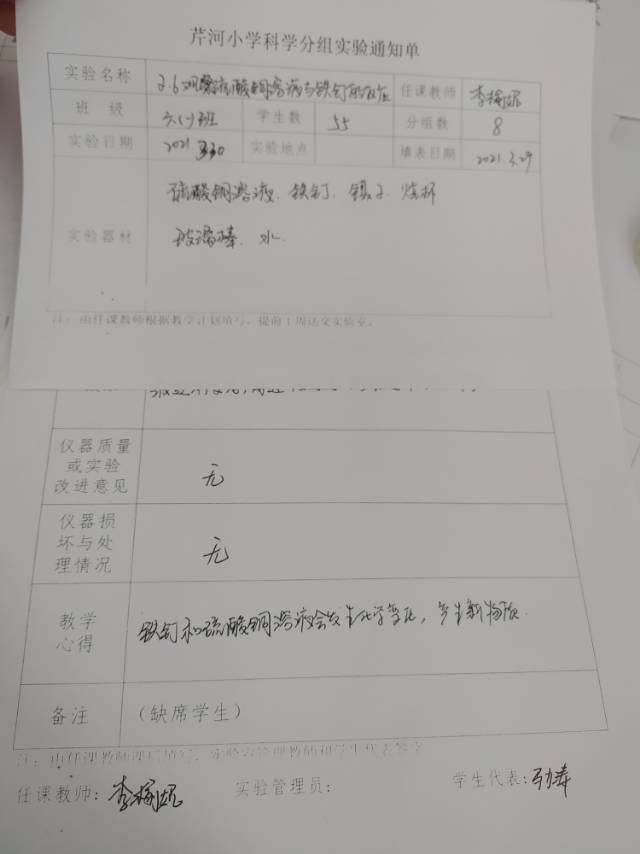 芹河小学科学分组实验通知单
实验名称 2.6观察硫酸铜溶液与铁钉的反应 任课教师 李
班级 六(1)班 学生数 55 分组数 8
实验日期 2021.3.30 实验地点 填表日期 2021.3.29
实验器材 硫酸铜溶液、铁钉、镊子、烧杯
玻璃棒、水.
注：由任课教师根据教学计划填写，提前1周送交实验室。
仪器质量
或实验
改进意见 无
仪器损
坏与处
理情况 无
教学
心得 铁钉和硫酸铜溶液会发生化学变化，产生新物质.
备注 (缺席学生)
注：由任课教师课后填写，实验室管理教师和学生代表签字
任课教师: 李 实验管理员: 学生代表: